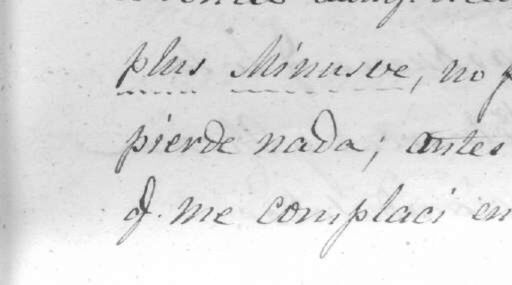 plus Minusve, no
pierde nada; antes
q. me complaci en